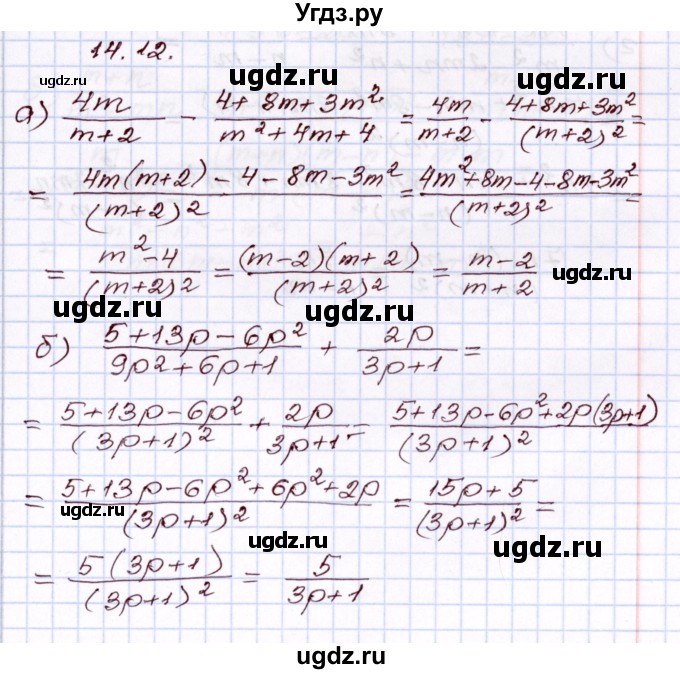 Угдз.ру
14.12.
ugdz.ru ugdz.ru ugdz.ru
а) 4m/(m+2) - (4+8m+3m²)/(m²+4m+4) = 4m/(m+2) - (4+8m+3m²)/(m+2)² =
ugdz.ru
= (4m(m+2)-4-8m-3m²)/(m+2)² = (4m²+8m-4-8m-3m²)/(m+2)² =
= (m²-4)/(m+2)² = ((m-2)(m+2))/(m+2)² = (m-2)/(m+2)
ugdz.ru ugdz.ru ugdz.ru
б) (5+13p-6p²)/(9p2+6p+1) + 2p/(3p+1) =
ugdz.ru
= (5+13p-6p²)/(3p+1)² + 2p/(3p+1) = (5+13p-6p²+2p(3p+1))/(3p+1)²
= (5+13p-6p²+6p²+2p)/(3p+1)² = (15p+5)/(3p+1)² =
ugdz.ru ugdz.ru ugdz.ru
= 5(3p+1)/(3p+1)² = 5/(3p+1)
ugdz.ru